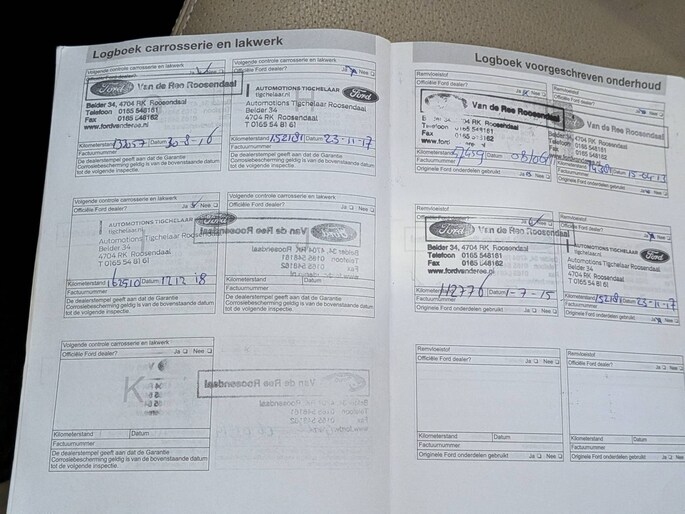 Logboek carrosserie en lakwerk
Volgende controle carrosserie en lakwerk
Officiële Ford dealer? Ja Nee
Ford Van de Ree Roosendaal
Belder 34, 4704 RK Roosendaal
Telefoon 0165 548161
Fax 0165 548162
www.fordvanderee.nl
Kilometerstand 132057 Datum 30-8-16
Factuurnummer
De dealerstempel geeft aan dat de Garantie
Corrosiebescherming geldig is van de bovenstaande datum
tot de volgende inspectie.
Volgende controle carrosserie en lakwerk
Officiële Ford dealer? Ja Nee
AUTOMOTIONS TIGCHELAAR
tigchelaar.nl
Ford
Automotions Tigchelaar
Belder 34
4704 RK Roosendaal
T 0165 54 81 61
Kilometerstand 152181 Datum 23-11-17
Factuurnummer
De dealerstempel geeft aan dat de Garantie
Corrosiebescherming geldig is van de bovenstaande datum
tot de volgende inspectie.
Volgende controle carrosserie en lakwerk
Officiële Ford dealer? Ja Nee
AUTOMOTIONS TIGCHELAAR
tigchelaar.nl
Ford
Automotions Tigchelaar
Belder 34
4704 RK Roosendaal
T 0165 54 81 61
Kilometerstand 162510 Datum 17 12 '18
Factuurnummer
De dealerstempel geeft aan dat de Garantie
Corrosiebescherming geldig is van de bovenstaande datum
tot de volgende inspectie.
Volgende controle carrosserie en lakwerk
Officiële Ford dealer? Ja Nee
Kilometerstand Datum
Factuurnummer
De dealerstempel geeft aan dat de Garantie
Corrosiebescherming geldig is van de bovenstaande datum
tot de volgende inspectie.
Volgende controle carrosserie en lakwerk
Officiële Ford dealer? Ja Nee
K
Kilometerstand Datum
Factuurnummer
De dealerstempel geeft aan dat de Garantie
Corrosiebescherming geldig is van de bovenstaande datum
tot de volgende inspectie.
Logboek voorgeschreven onderhoud
Remvloeistof
Officiële Ford dealer? Ja Nee
Van de Ree Roosendaal
Belder 34, 4704 RK Roosendaal
Telefoon 0165 548161
Fax 0165 548162
Kilometerstand Datum
Factuurnummer
Originele Ford onderdelen gebruikt Ja Nee
Remvloeistof
Officiële Ford dealer? Ja Nee
Roosendaal
0165 548161
0165 548162
Datum 15-04-13
Factuurnummer
Originele Ford onderdelen gebruikt Ja Nee
Officiële Ford dealer? Ja Nee
Ford Van de Ree Roosendaal
Belder 34, 4704 RK Roosendaal
Telefoon 0165 548161
Fax 0165 548162
www.fordvanderee.nl
Kilometerstand 112776 Datum 1-7-15
Factuurnummer
Originele Ford onderdelen gebruikt Ja Nee
Officiële Ford dealer? Ja Nee
AUTOMOTIONS TIGCHELAAR
tigchelaar.nl
Ford
Automotions Tigchelaar
Belder 34
4704 RK Roosendaal
T 0165 54 81 61
Kilometerstand 152181 Datum 23-11-17
Factuurnummer
Originele Ford onderdelen gebruikt Ja Nee
Remvloeistof
Officiële Ford dealer? Ja Nee
Kilometerstand Datum
Factuurnummer
Originele Ford onderdelen gebruikt Ja Nee
Remvloeistof
Officiële Ford dealer? Ja Nee
Kilometerstand Datum
Factuurnummer
Originele Ford onderdelen gebruikt Ja Nee